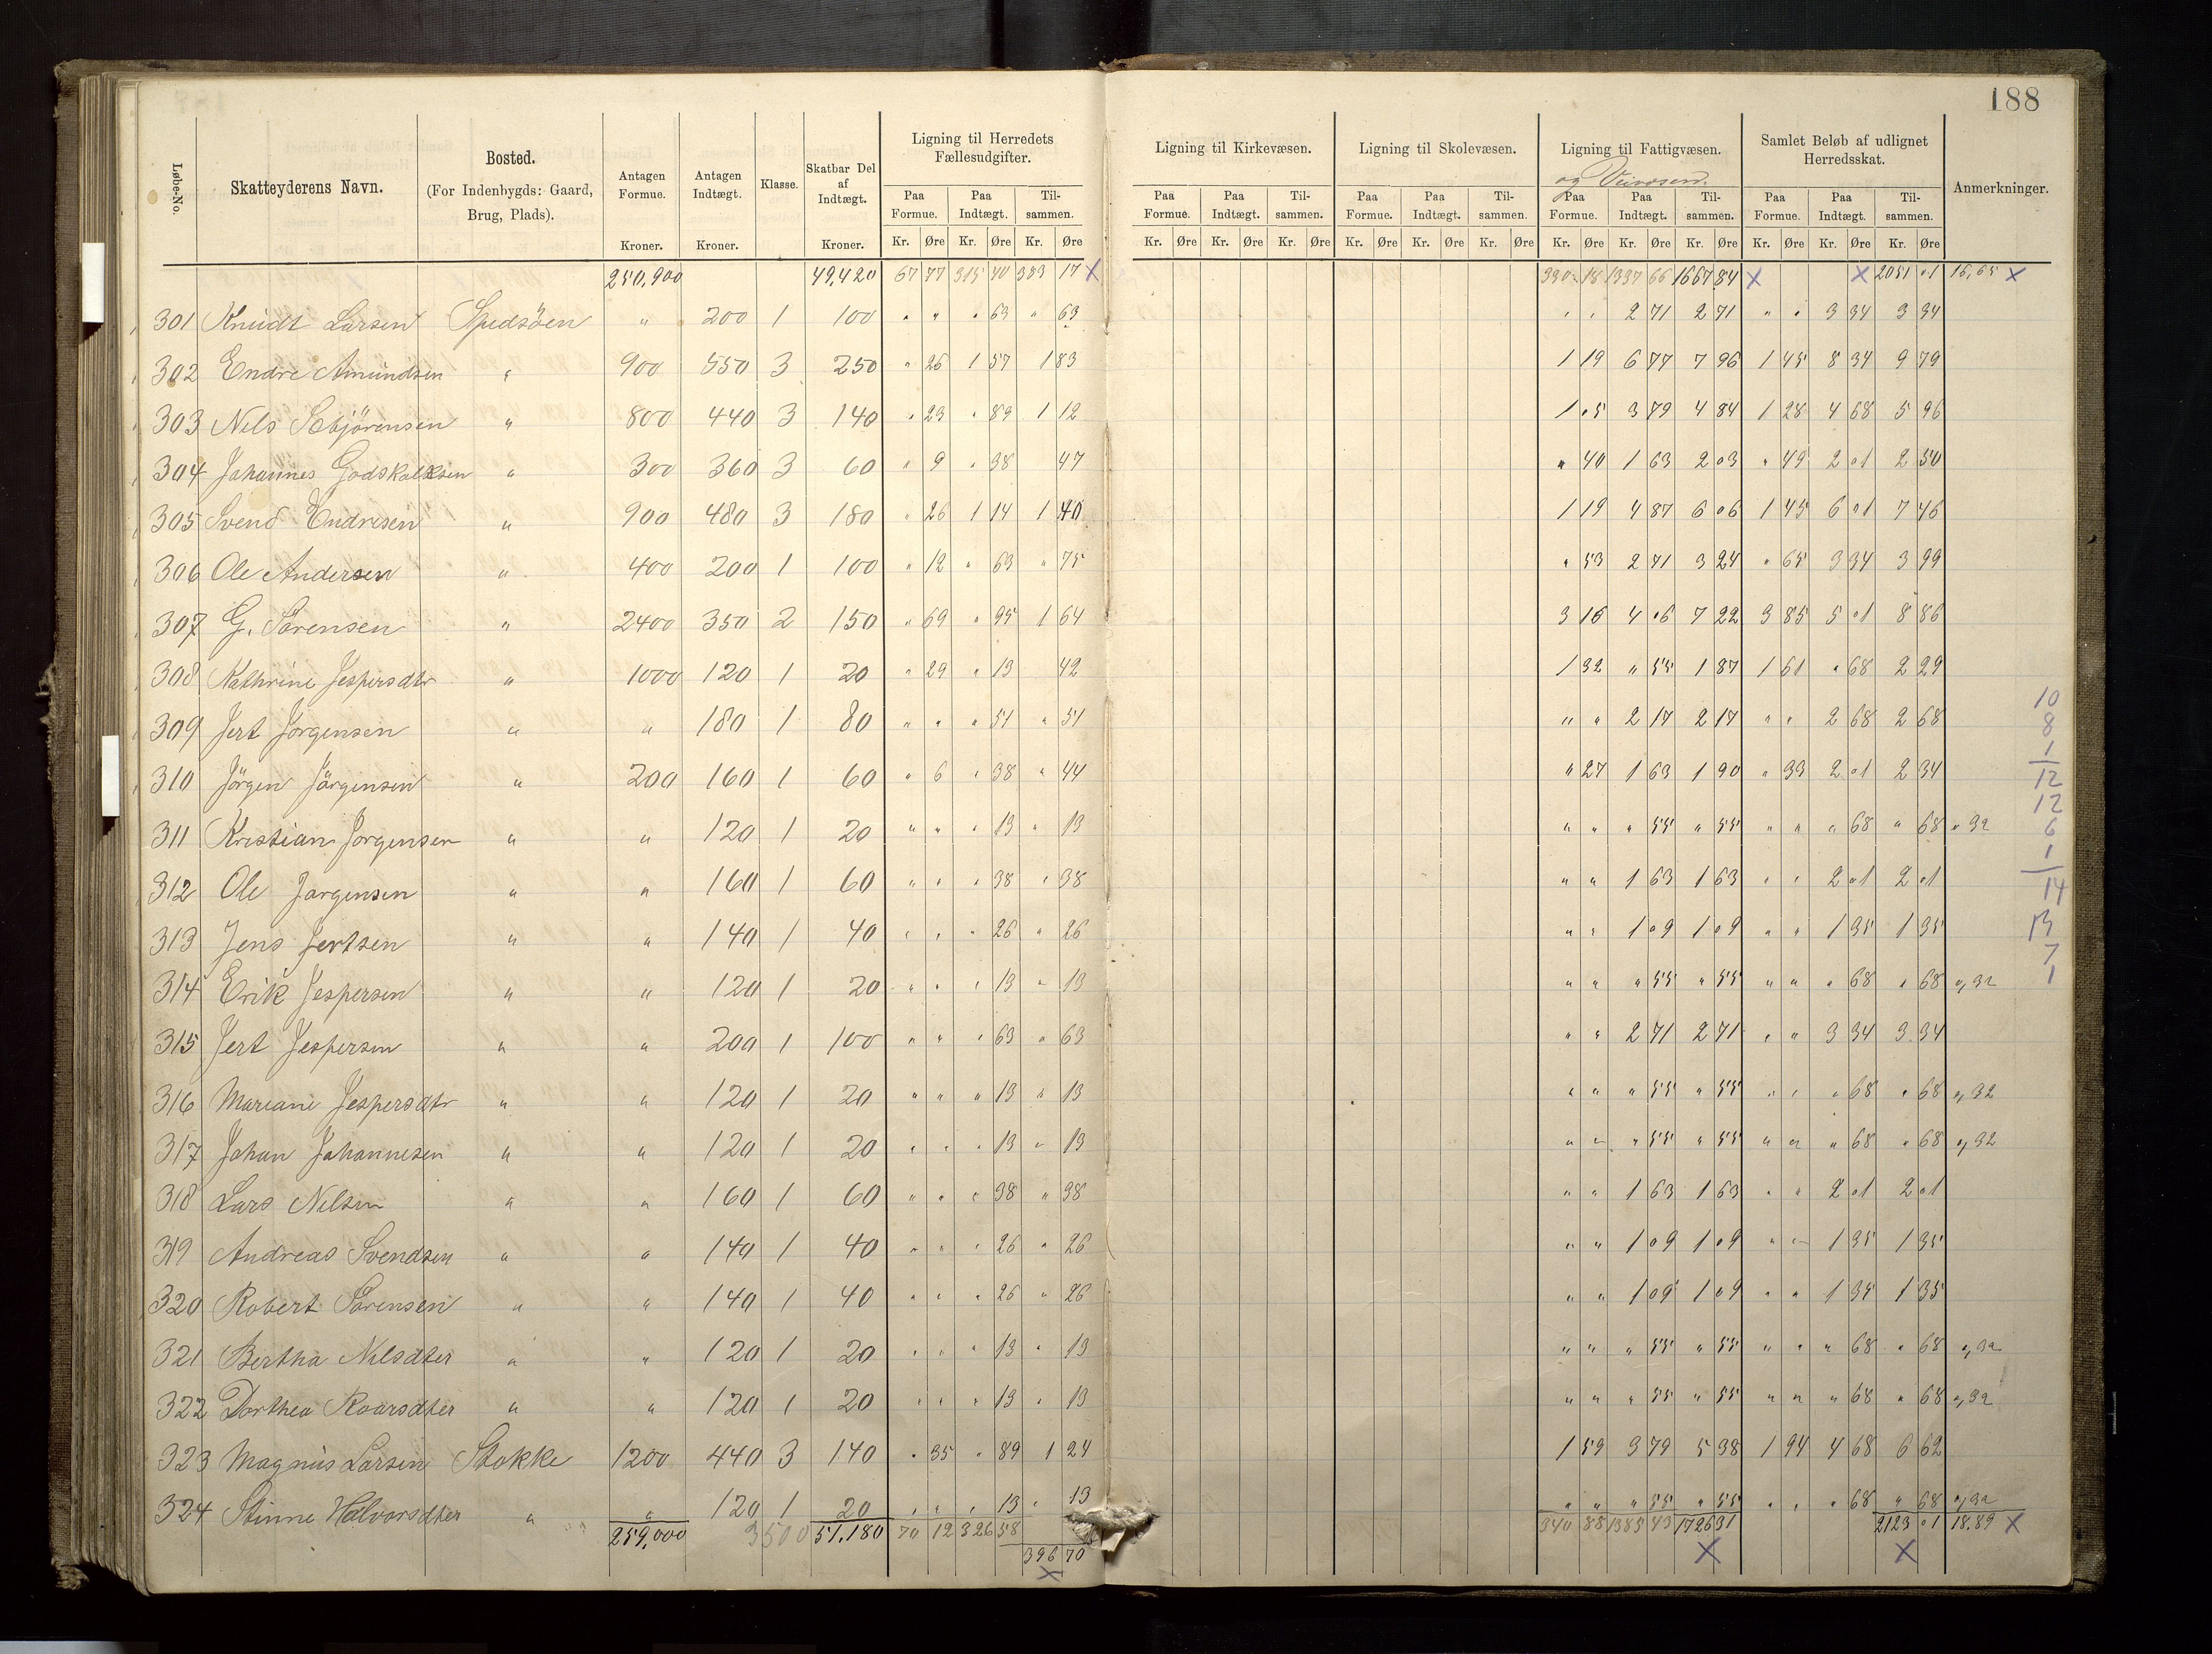 188
Løbe-No. Skatteyderens Navn. Bosted. (For Indenbygds: Gaard, Brug, Plads). Antagen Formue. Kroner. Antagen Indtægt. Kroner. Klasse. Skatbar Del af Indtægt. Kroner. Ligning til Herredets Fællesudgifter. Ligning til Kirkevæsen. Ligning til Skolevæsen. Ligning til Fattigvæsen. og Veivæsen. Samlet Beløb af udlignet Herredsskat. Anmerkninger.
Paa Formue. Paa Indtægt. Tilsammen. Paa Formue. Paa Indtægt. Tilsammen. Paa Formue. Paa Indtægt. Tilsammen. Paa Formue. Paa Indtægt. Tilsammen. Paa Formue. Paa Indtægt. Tilsammen.
Kr. Øre Kr. Øre Kr. Øre Kr. Øre Kr. Øre Kr. Øre Kr. Øre Kr. Øre Kr. Øre Kr. Øre Kr. Øre Kr. Øre Kr. Øre Kr. Øre Kr. Øre
250,900 49,420 67 77 315 40 383 17 X 330 18 1337 66 1667 84 X X 2051 01 16,65 X
301 Knudt Larsen Spedsöen " 200 1 100 " " " 63 " 63 " " 2 71 2 71 " " 3 34 3 34
302 Endre Amundsen " 900 550 3 250 " 26 1 57 1 83 1 19 6 77 7 96 1 45 8 34 9 79
303 Nils Sæbjörensen " 800 440 3 140 " 23 " 89 1 12 1 05 3 79 4 84 1 28 4 68 5 96
304 Johannes Godskalksen " 300 360 3 60 " 9 " 38 47 " 40 1 63 2 03 " 49 2 01 2 50
305 Svend Endresen " 900 480 3 180 " 26 1 14 1 40 1 19 4 87 6 06 1 45 6 01 7 46
306 Ole Andersen " 400 200 1 100 " 12 " 63 " 75 " 53 2 71 3 24 " 65 3 34 3 99
307 G. Sörensen " 2400 350 2 150 " 69 " 95 1 64 3 16 4 06 7 22 3 85 5 01 8 86
308 Kathrine Jespersdtr " 1000 120 1 20 " 29 " 13 42 1 32 " 55 1 87 1 61 " 68 2 29
309 Jert Jörgensen " " 180 1 80 " " " 51 " 51 " " 2 17 2 17 " " 2 68 2 68
310 Jörgen Jörgensen " 200 160 1 60 " 6 " 38 " 44 " 27 1 63 1 90 " 33 2 01 2 34
311 Kristian Jörgensen " " 120 1 20 " " " 13 " 13 " " " 55 " 55 " " " 68 " 68 " 32
312 Ole Jörgensen " " 160 1 60 " " " 38 " 38 " " 1 63 1 63 " " 2 01 2 01
313 Jens Jertsen " " 140 1 40 " " " 26 " 26 " " 1 09 1 09 " " 1 35 1 35
314 Erik Jespersen " " 120 1 20 " " " 13 " 13 " " " 55 " 55 " " " 68 " 68 0,32
315 Jert Jespersen " " 200 1 100 " " " 63 " 63 " " 2 71 2 71 " " 3 34 3 34
316 Mariane Jespersdtr " " 120 1 20 " " " 13 " 13 " " " 55 " 55 " " " 68 " 68 0,32
317 Johan Johannesen " " 120 1 20 " " " 13 " 13 " " " 55 " 55 " " " 68 " 68 0,32
318 Lars Nilsen " " 160 1 60 " " " 38 " 38 " " 1 63 1 63 " " 2 01 2 01
319 Andreas Svendsen " " 140 1 40 " " " 26 " 26 " " 1 09 1 09 " " 1 35 1 35
320 Robert Sörensen " " 140 1 40 " " " 26 " 26 " " 1 09 1 09 " " 1 35 1 35
321 Bertha Nilsdter " " 120 1 20 " " " 13 " 13 " " " 55 " 55 " " " 68 " 68 0,32
322 Dorthea Roarsdter " " 120 1 20 " " " 13 " 13 " " " 55 " 55 " " " 68 " 68 0,32
323 Magnus Larsen Stokke 1200 440 3 140 " 35 " 89 1 24 1 59 3 79 5 38 1 94 4 68 6 62
324 Stinne Halvorsdter " " 120 1 20 " " " 13 " 13 " " " 55 " 55 " " " 68 " 68 0,32
259,000 3500 51,180 70 12 326 58 340 88 1385 43 1726 31 2123 01 18.89 X
396 70 X X
X
10
8
1
12
12
6
1
14
13
7
1